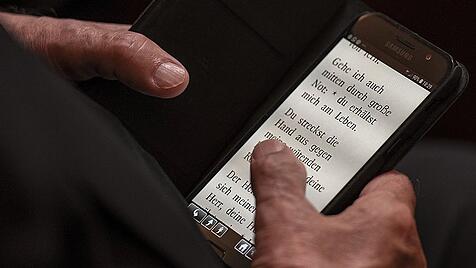 SAMSUNG
Gehe ich auch
mitten durch große
Not: * du erhältst
mich am Leben.
Du streckst die
Hand aus gegen
deine
Der He
sich meiner
Herr, deine H